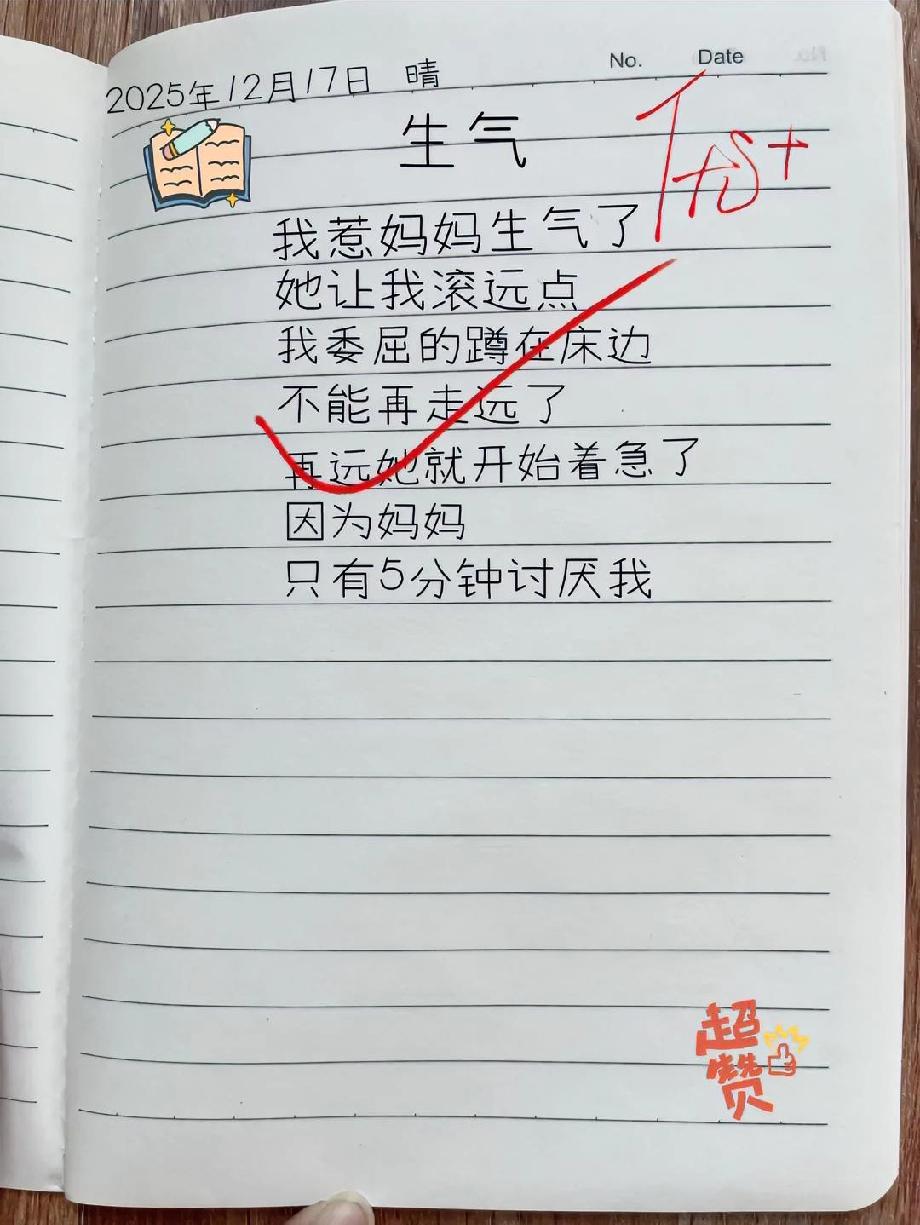 No. Date
2025年12月17日 晴
生气
我惹妈妈生气了
她让我滚远点
我委屈的蹲在床边
不能再走远了
再远她就开始着急了
因为妈妈
只有5分钟讨厌我
超赞